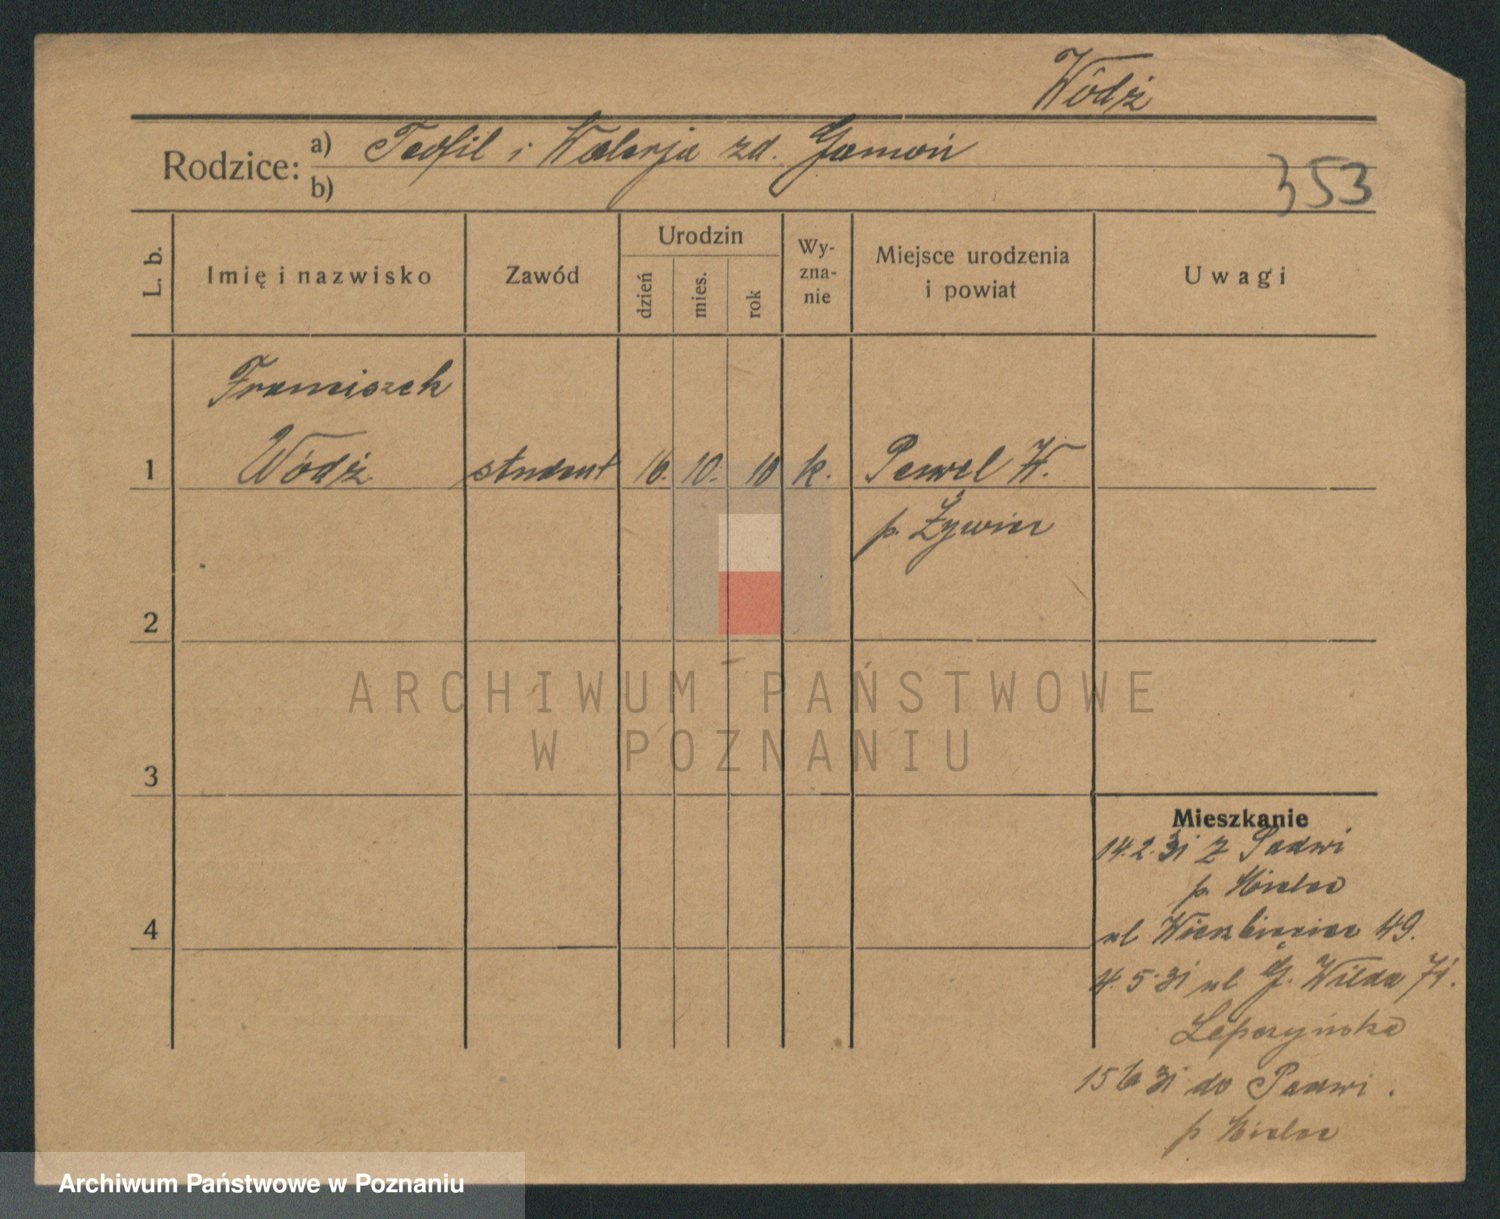 Wódż
Rodzice:
a) Teofil i Walerja zd. Gamoń
b)
353
L. b.
Imię i nazwisko
Zawód
Urodzin
dzień
mies.
rok
Wy-
zna-
nie
Miejsce urodzenia
i powiat
Uwagi
Franciszek
1 Wódż student 16. 10. 10 k. Pewel W.
p. Żywiec
2
3
4
ARCHIWUM PAŃSTWOWE
W POZNANIU
Mieszkanie
14.2.31 z Padwi
p. Mielec
ul Wierzbięcice 49.
4.5.31 ul G. Wilda 71.
Lepczyńska
15 6 31 do Padwi.
p Mielec
Archiwum Państwowe w Poznaniu